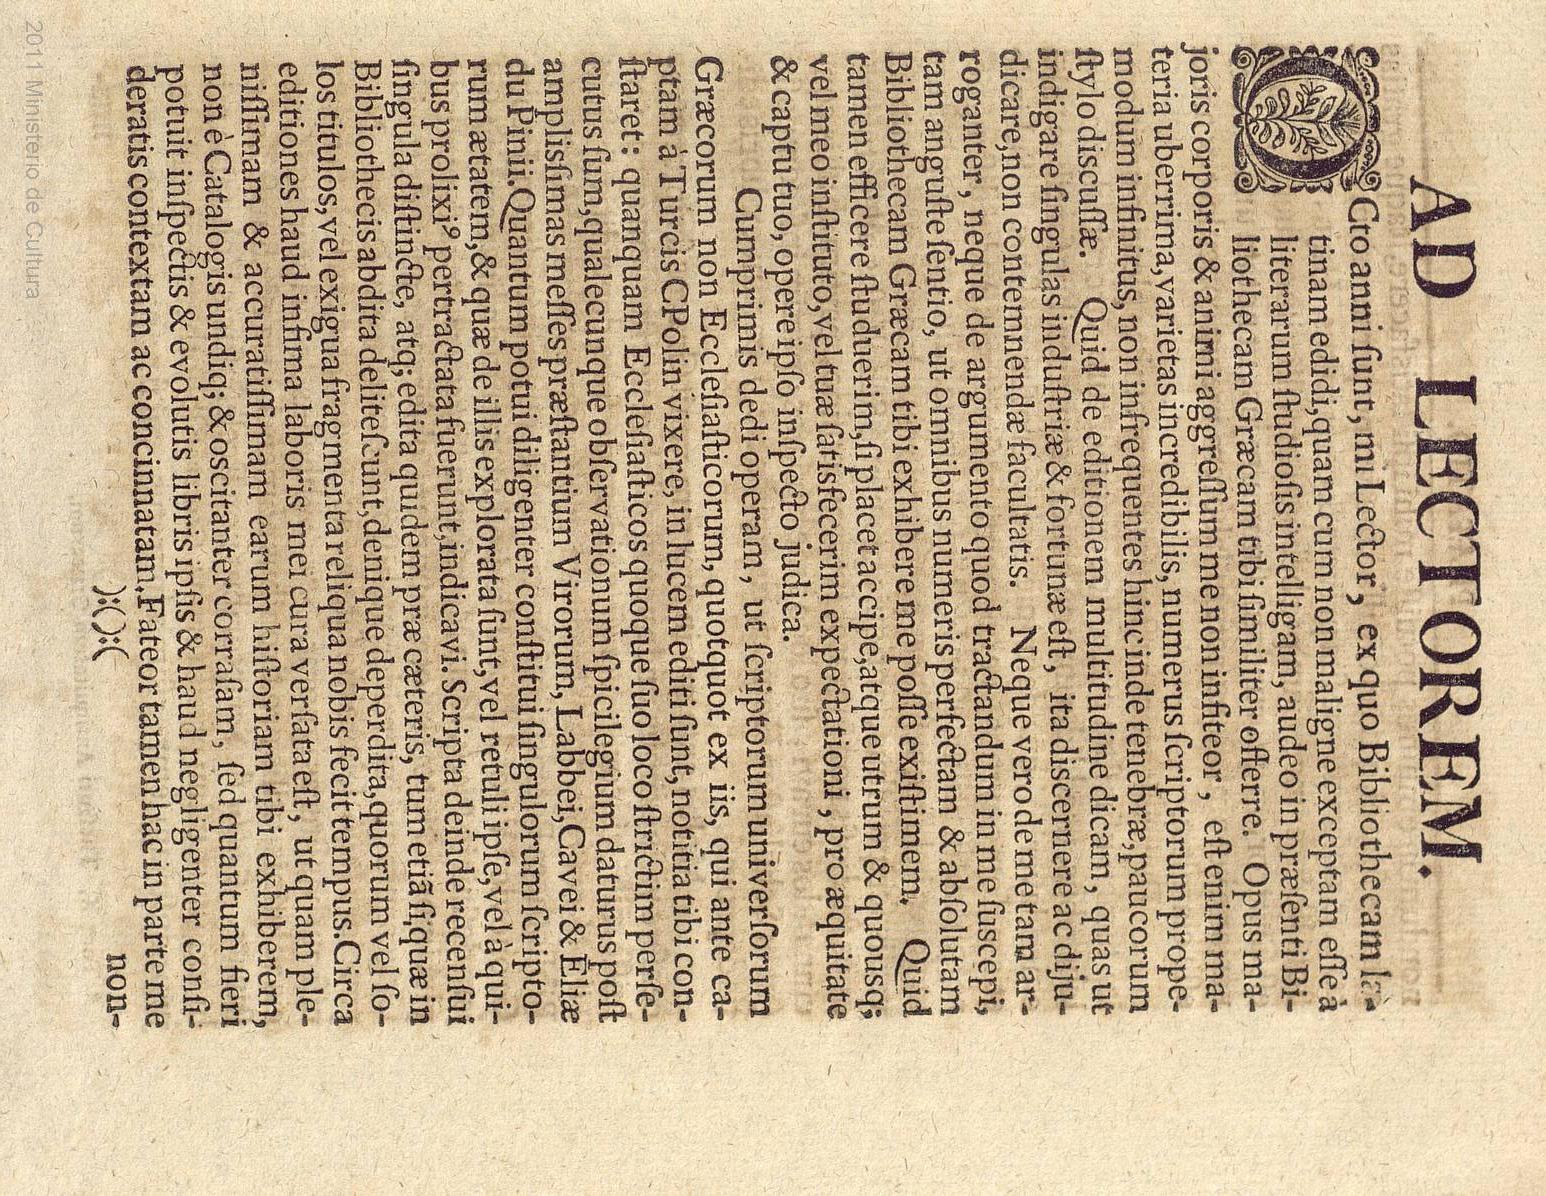 AD LECTOREM.
OCto anni ſunt, mi Lector, ex quo Bibliothecam la-
tinam edidi, quam cum non maligne exceptam eſſe à
literarum ſtudioſis intelligam, audeo in præſenti Bi-
liothecam Græcam tibi ſimiliter offerre. Opus ma-
joris corporis & animi aggreſſum me non infiteor, eſt enim ma-
teria uberrima, varietas incredibilis, numerus ſcriptorum prope-
modum infinitus, non infrequentes hinc inde tenebræ, paucorum
ſtylo diſcuſſæ. Quid de editionem multitudine dicam, quas ut
indigare ſingulas induſtriæ & fortunæ eſt, ita diſcernere ac diju-
dicare, non contemnendæ facultatis. Neque vero de me tam ar-
roganter, neque de argumento quod tractandum in me ſuscepi,
tam anguſte ſentio, ut omnibus numeris perfectam & abſolutam
Bibliothecam Græcam tibi exhibere me poſſe exiſtimem. Quid
tamen efficere ſtuduerim, ſi placet accipe, atque utrum & quousq;
vel meo inſtituto, vel tuæ ſatisfecerim expectationi, pro æquitate
& captu tuo, opere ipſo inſpecto judica.
Cumprimis dedi operam, ut ſcriptorum univerſorum
Græcorum non Eccleſiaſticorum, quotquot ex iis, qui ante ca-
ptam à Turcis CPolin vixere, in lucem editi ſunt, notitia tibi con-
ſtaret: quanquam Eccleſiaſticos quoque ſuo loco ſtrictim perſe-
cutus ſum, qualecunque obſervationum ſpicilegium daturus poſt
amplisſimas meſſes præſtantium Virorum, Labbei, Cavei & Eliæ
du Pinii. Quantum potui diligenter conſtitui ſingulorum ſcripto-
rum ætatem, & quæ de illis explorata ſunt, vel retuli ipſe, vel à qui-
bus prolixiꝰ pertractata fuerunt, indicavi. Scripta deinde recenſui
ſingula diſtincte, atq; edita quidem præ cæteris, tum etiã ſi quæ in
Bibliothecis abdita deliteſcunt, denique deperdita, quorum vel ſo-
los titulos, vel exigua fragmenta reliqua nobis fecit tempus. Circa
editiones haud infima laboris mei cura verſata eſt, ut quam ple-
niſſimam & accuratiſſimam earum hiſtoriam tibi exhiberem,
non è Catalogis undiq; & oscitanter corraſam, ſed quantum fieri
potuit inſpectis & evolutis libris ipſis & haud negligenter conſi-
deratis contextam ac concinnatam, Fateor tamen hac in parte me
):( ):(
non-
2011 Ministerio de Cultura